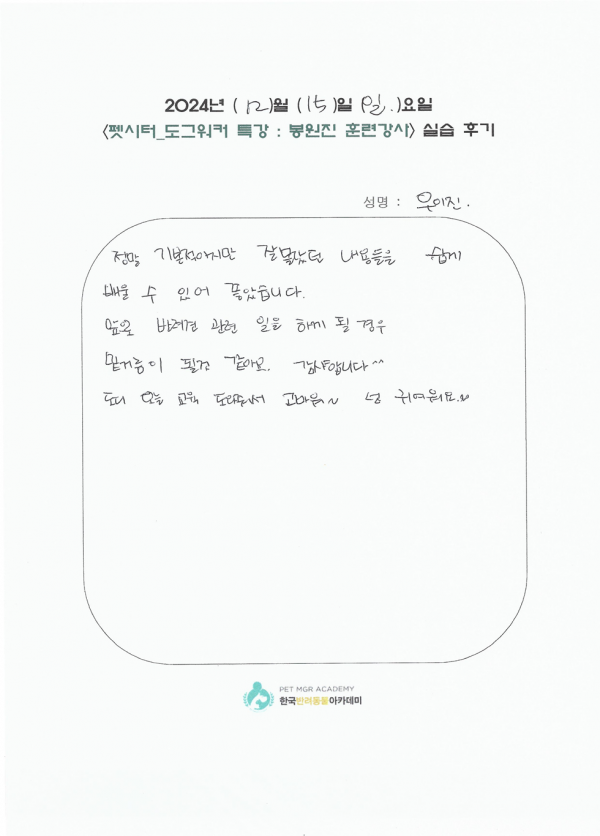 2024년 (12)월 (15)일 (일.)요일
<펫시터_도그워커 특강 : 봉원진 훈련강사> 실습 후기
성명 : 우이진.
정말 기본적이지만 잘 몰랐던 내용들을 쉽게
배울 수 있어 좋았습니다.
앞으로 반려견 관련 일을 하게 될 경우
밑거름이 될것 같아요. 감사합니다^^
오늘 교육 도와줘서 고마워~ 넘 귀여워요~
PET MGR ACADEMY
한국반려동물아카데미